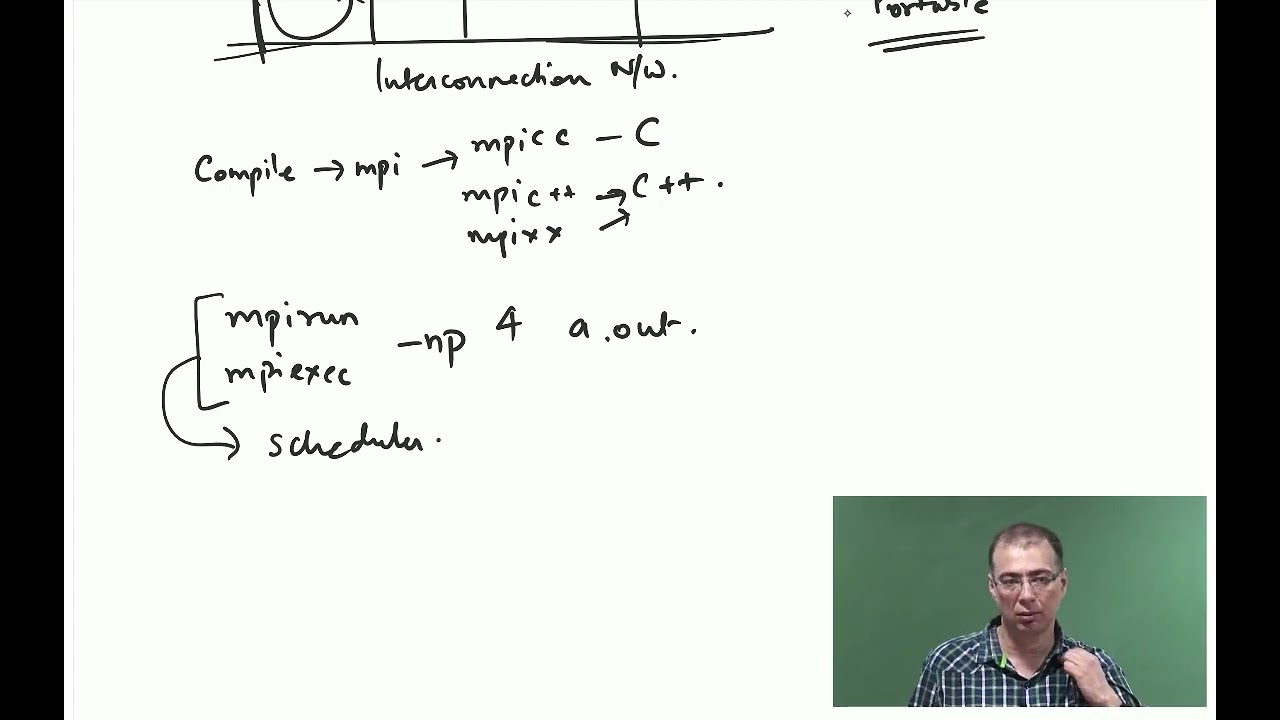 Portable
Interconnection N/W.
Compile → mpi → mpicc – C
mpic++ → C++.
mpixx →
mpirun
mpiexec
–np 4 a.out.
→ scheduler.